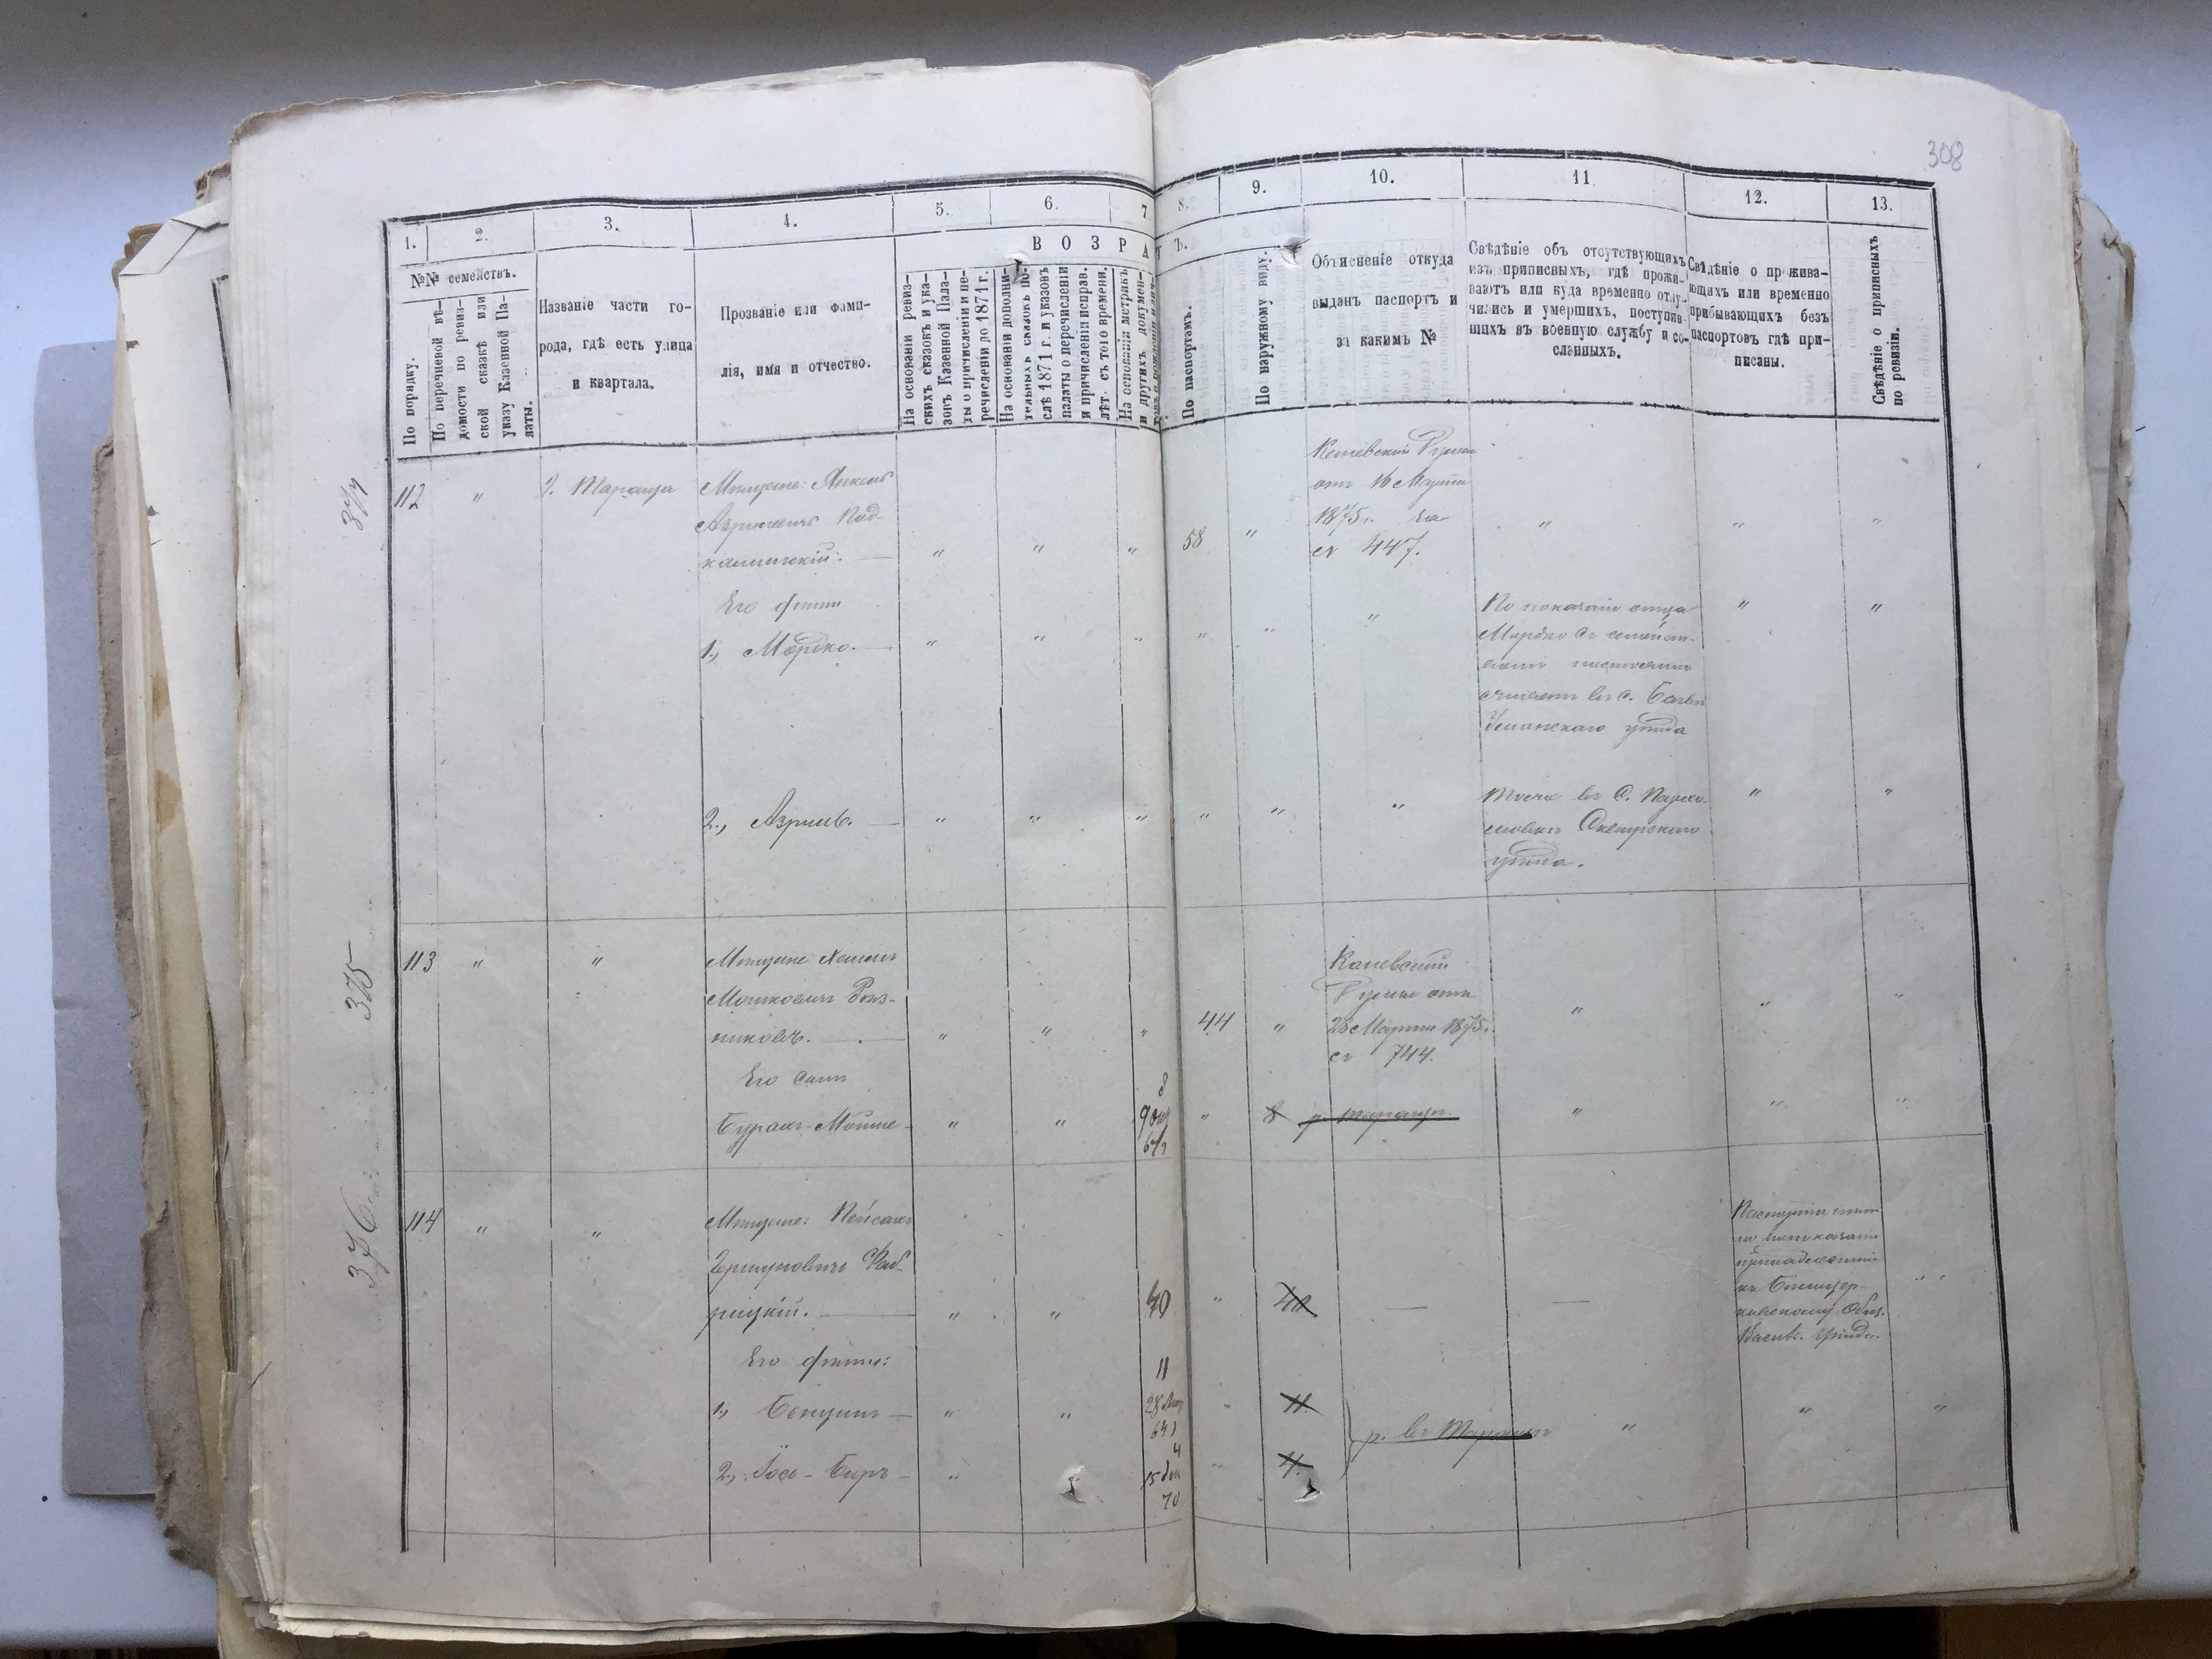 308
1.
2.
3.
4.
5.
6.
7
8.
9.
10.
11
12.
13.
№№ семействъ.
В О З Р А
Т Ъ.
По порядку.
По перечневой вѣ-
домости по ревиз-
ской сказкѣ или
указу Казенной Па-
латы.
Названіе части го-
рода, гдѣ есть улица
и квартала.
Прозваніе или фами-
лія, имя и отчество.
На основаніи ревиз-
скихъ сказокъ и ука-
зокъ Казенной Пала-
ты о причисленіи и пе-
речисленіи до 1871 г.
На основаніи дополни-
тельныхъ сказокъ по-
слѣ 1871 г. и указовъ
палаты о перечисленіи
и причисленія исправ.
лѣт. съ того времени.
На основаніи метрикъ
и другихъ докумен-
По паспортамъ.
По наружному виду.
Объясненіе откуда
выданъ паспортъ и
за какимъ №
Свѣдѣніе объ отсутствующихъ
изъ приписныхъ, гдѣ прожи-
ваютъ или куда временно отлу-
чились и умершихъ, поступив-
шихъ въ военную службу и со-
сланныхъ.
Свѣдѣніе о прожива-
ющихъ или временно
прибывающихъ безъ
паспортовъ гдѣ при-
писаны.
Свѣдѣніе о приписныхъ
по ревизіи.
374
112 " г. Тараща Мещане: Янкель
Азрилевичъ Под-
каминскій: " " " 58 "
от 16 Марта
1875 г. за
№ 447. " " "
Его дѣти
1., Мордко. " " " " " "
По показанію отца
Мордко съ семей-
въ с.
Уманскаго уѣзда " "
2., Азриль. " " " " " "
Тоже въ с. Пархо-
мовкѣ Сквирскаго
уѣзда. " "
375
113 " " Мещане
Мошковичъ Рѣз-
никовъ. " " " 44 "
Каневской
Думы отъ
28 Марта 1875 г.
№ 744. " " "
Его сынъ
Бурахъ-Мойше " " 8
9
67 " 8 р. Тараща " " "
376
114 " " Мещане: Пейсахъ
Гершуновичъ
рицкій. " " 40 " 40 — —
Паспорта
по показанію
принадлежитъ
къ Бѣлоцер-
ковскому Общ.
Васильк. уѣзда. "
Его дѣти:
1., " " 11
28
64 " 11.
р. въ Таращѣ " " "
2., Іось-Беръ " 4
15
70 " 4.